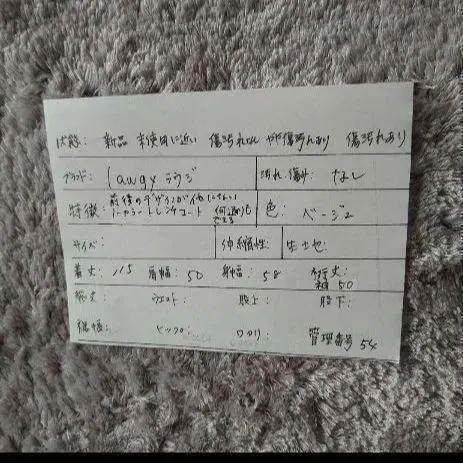 状態: 新品 未使用に近い 傷汚れなし やや傷汚れあり 傷汚れあり
ブランド: lawgy ラウジ 汚れ、傷み: なし
特徴: 前後のデザインが他にない
ニャラートレンチコート 何通りも
きえる 色: ベージュ
サイズ: 伸縮性: 生地:
着丈: 115 肩幅: 50 身幅: 58 裄丈:
袖 50
総丈: ウエスト: 股上: 股下:
裾幅: ヒップ: ワタリ: 管理番号 54